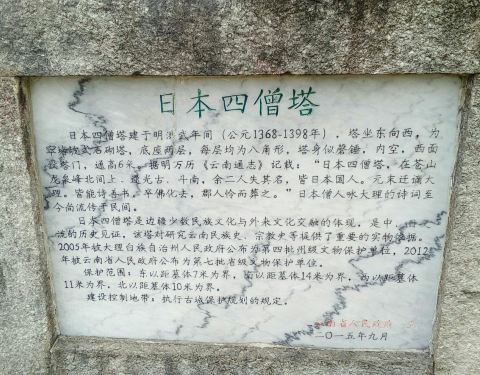 日本四僧塔
日本四僧塔建于明洪武年间（公元1368-1398年），塔坐东向西，为
窣堵坡式石砌塔，底座两层，每层均为八角形，塔身似磬锤，内空，西面
设塔门，通高6米。据明万历《云南通志》记载：“日本四僧塔，在苍山
龙泉峰北间上，逯光古、斗南，余二人失其名，皆日本国人。元末迁谪大
理，皆能诗善书，卒佛化去，郡人怜而葬之。”日本僧人咏大理的诗词至
今尚流传于民间。
日本四僧塔是边疆少数民族文化与外来文化交融的体现，是中
流的历史见证，该塔对研究云南民族史、宗教史等提供了重要的实物依据。
2005年被大理白族自治州人民政府公布为第四批州级文物保护单位，2012
年被云南省人民政府公布为第七批省级文物保护单位。
保护范围：东以距墓体7米为界，南以距墓体14米为界，西以距墓体
11米为界，北以距墓体10米为界。
建设控制地带：执行古城保护规划的规定。
云南省人民政府
二〇一五年九月